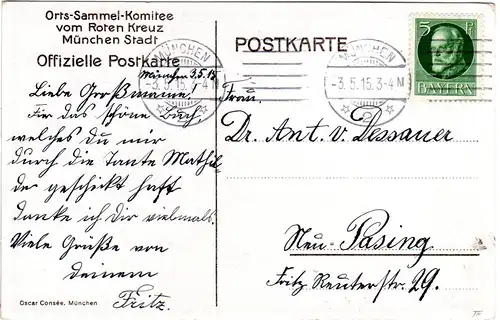 Orts-Sammel-Komitee
vom Roten Kreuz
München Stadt
Offizielle Postkarte
POSTKARTE
MÜNCHEN
-3.5.15.3-4N
2
MÜNCHEN
-3.5.15.3-4N
2
5 Pf
BAYERN
München 3.5.15
Liebe Großmama!
Für das schöne Buch,
welches Du mir
durch die Tante Mathil-
de geschickt hast
danke ich Dir vielmals.
Viele Grüße von
deinem
Fritz.
Dr. Ant. v. Dessauer
Neu-Pasing
Fritz Reuterstr. 29.
Oscar Consée, München